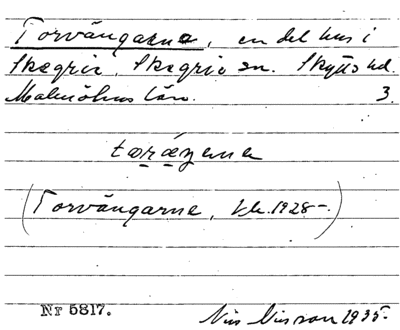 Torvängarne, en del hus i
Skegrie, Skegrie sn. Skytts hd.
Malmöhus län. 3.
(Torvängarne, 1928-.)
Nr 5817.
Nils Nilsson 1935.